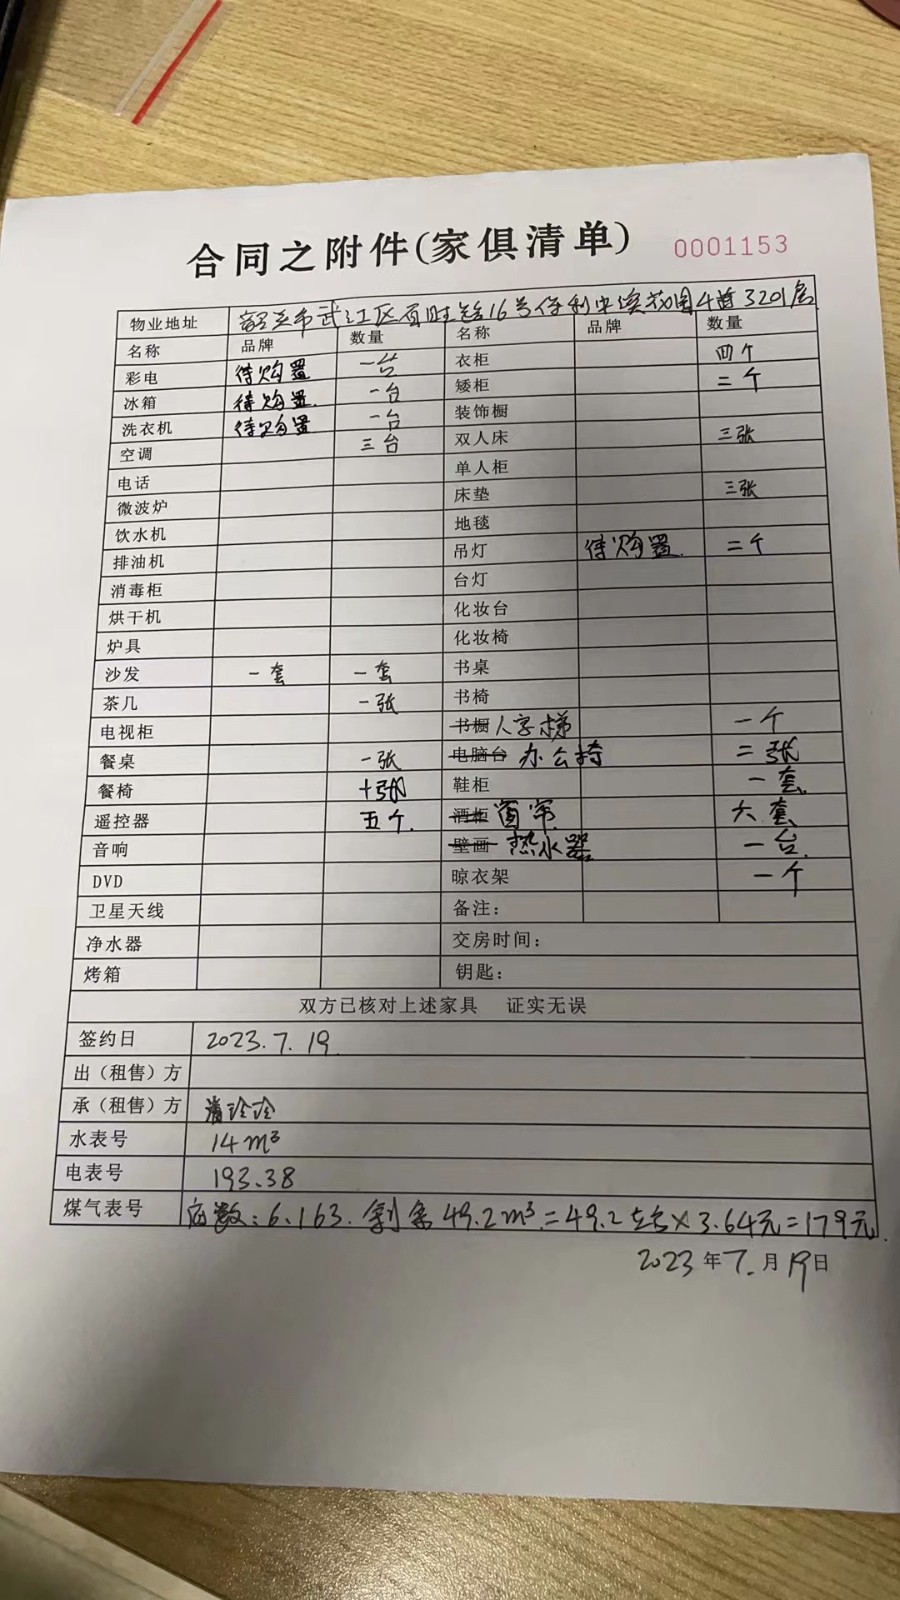 合同之附件(家俱清单) 0001153
物业地址 韶关市武江区百旺路16号保利中央花园4幢3201房
名称 品牌 数量 名称 品牌 数量
彩电 待购置 一台 衣柜 四个
冰箱 待购置. 一台 矮柜 二个
洗衣机 待购置 一台 装饰橱
空调 三台 双人床 三张
电话 单人柜
微波炉 床垫 三张
饮水机 地毯
排油机 吊灯 待购置. 二个
消毒柜 台灯
烘干机 化妆台
炉具 化妆椅
沙发 一套 一套 书桌
茶几 一张 书椅
电视柜 书橱 人字梯 一个
餐桌 一张 电脑台 办公椅 二张
餐椅 十张 鞋柜 一套
遥控器 五个. 酒柜 窗帘 六套
音响 壁画 热水器 一台.
DVD 晾衣架 一个
卫星天线 备注：
净水器 交房时间：
烤箱 钥匙：
双方已核对上述家具 证实无误
签约日 2023.7.19.
出（租售）方
承（租售）方 玲玲
水表号 14m³
电表号 193.38
煤气表号 底数：6.163. 剩余49.2m³=49.2×3.64元=179元.
2023年7.月19日